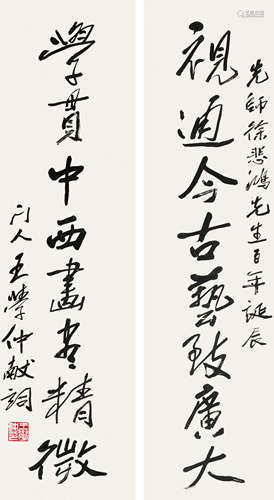 先師徐悲鴻先生百年誕辰
視通今古藝致廣大
學貫中西畫盡精微
門人王學仲獻詞